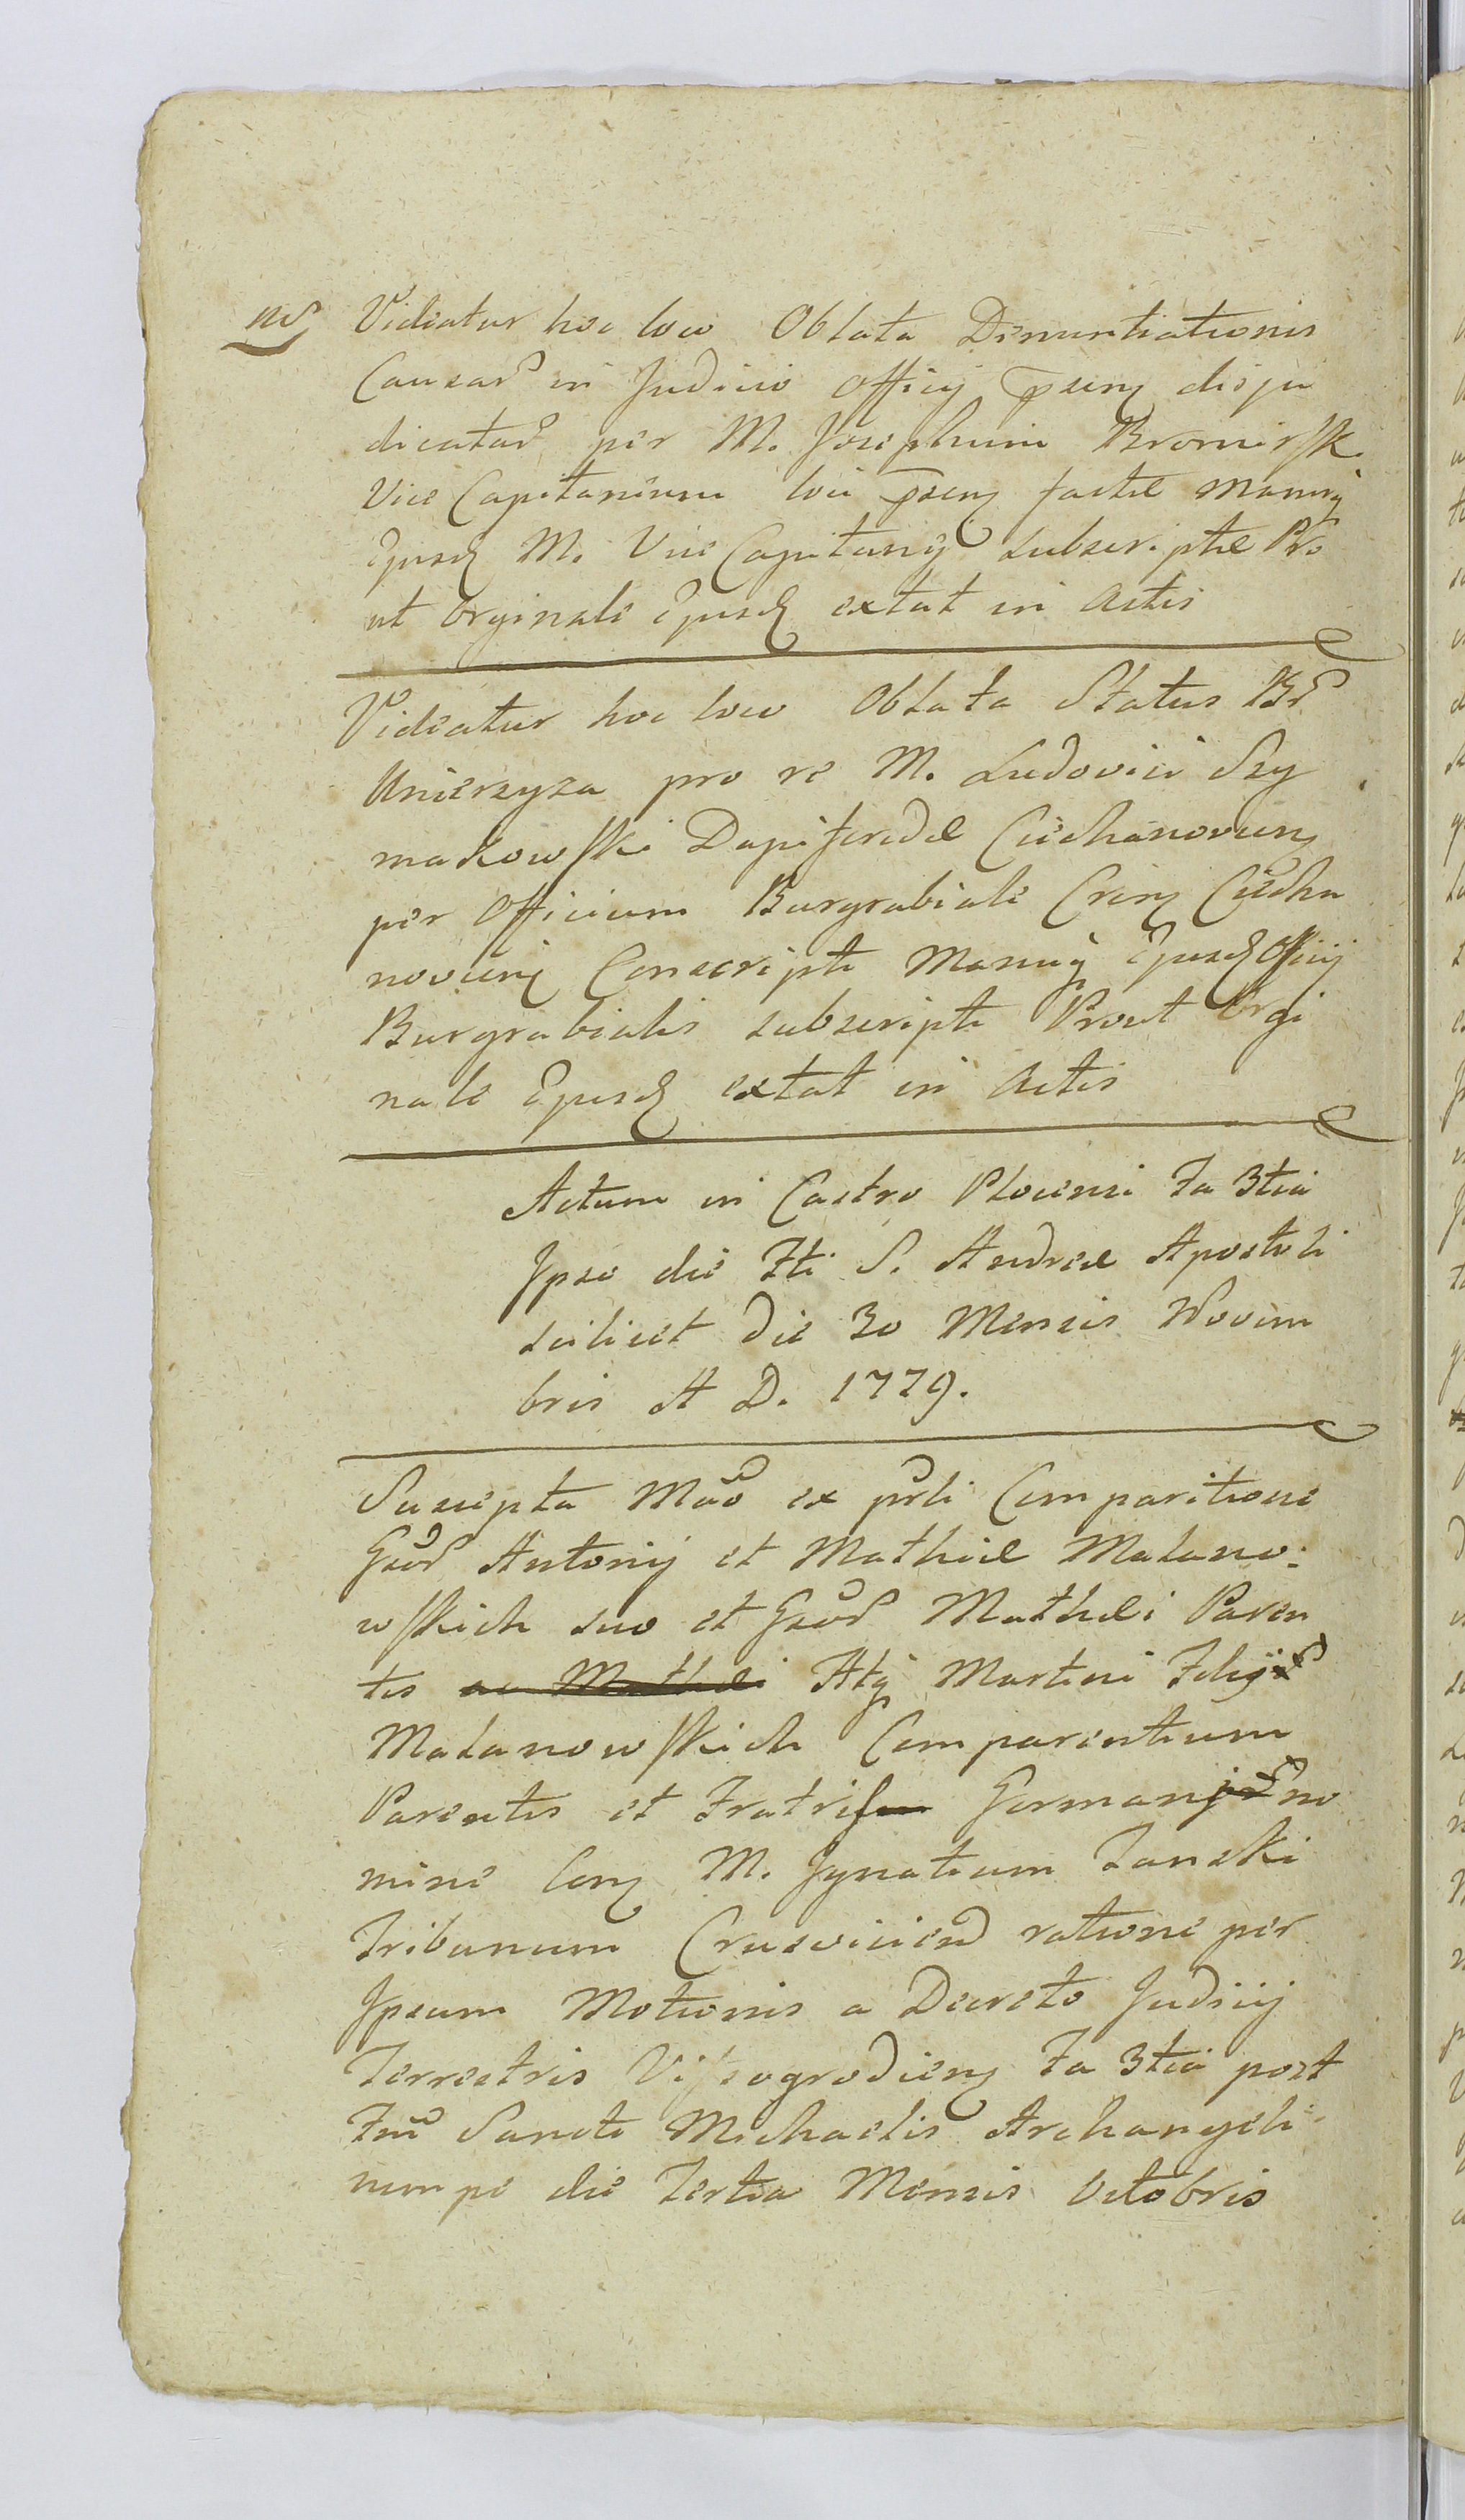 Videatur hoc loco Oblata Denuntiationis
Causar in Judicio Officij pseng disju
dicatar per M. Josephum Bromirsk.
Vice Capitaneum loci pseng factæ manuq
Ejusd M. Vice Capitanej subscriptæ Pro
ut Orginale Ejusd extat in Actis
Videatur hoc loco Oblata Status Br
Unierzyza pro re M. Ludovici Szy
makowski Dapiferidæ Ciechanoviens
per Officium Burgrabiale Crens Ciecha
noviens Conscripti Manuq Ejusd Officij
Burgrabialis subscripti Prout Orgi
nale Ejusd extat in Actis
Actum in Castro Plocensi Fa 3tia
Ipso die Fti S. Andreæ Apostoli
scilicet Die 30 Mensis Novem
bris A D. 1779.
Suscepta Mao ex psli Comparitione
Gsor Antonij et Mathiæ Malano:
wskich suo et Gsor Mathæi Paren
tis ac Mathæi Atq Martini Filij
Malanowskich Comparentium
Parentis et Fratris Germanj no
mine Cong M. Ignatium Zanski
Tribunum Crusvicien ratione per
Ipsum Motionis a Decreto Judicij
Terrestris Vissogrodiens Fa 3tia post
Fm Sancti Michaelis Archangeli
nempe die Tertia Mensis Octobris